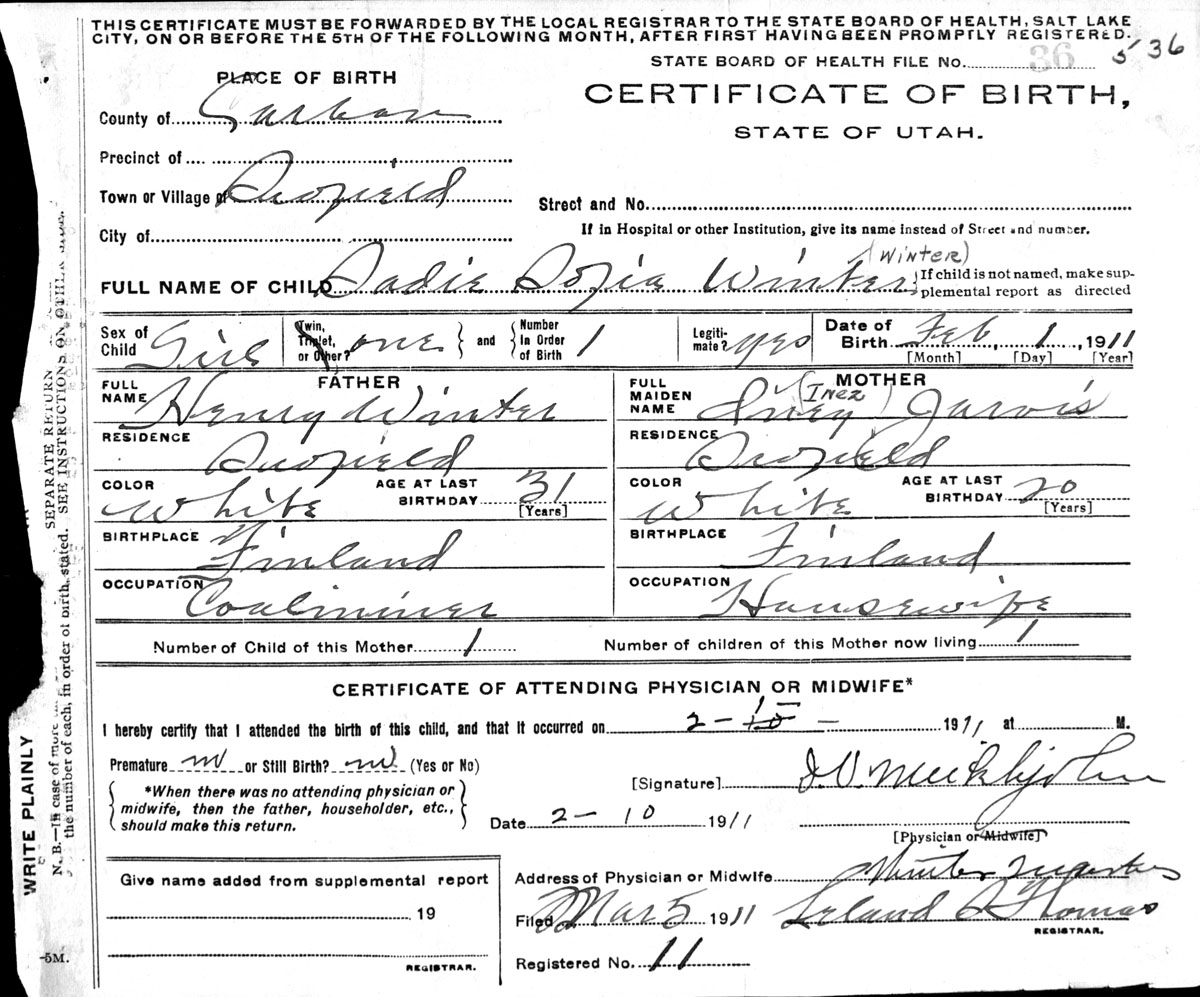 THIS CERTIFICATE MUST BE FORWARDED BY THE LOCAL REGISTRAR TO THE STATE BOARD OF HEALTH, SALT LAKE
CITY, ON OR BEFORE THE 5TH OF THE FOLLOWING MONTH, AFTER FIRST HAVING BEEN PROMPTLY REGISTERED.
STATE BOARD OF HEALTH FILE No. 36 536
PLACE OF BIRTH
CERTIFICATE OF BIRTH,
STATE OF UTAH.
County of Carbon
Precinct of
Town or Village of Scofield
Street and No.
City of
If in Hospital or other Institution, give its name instead of Street and number.
(Winter)
FULL NAME OF CHILD Sadie Sofia Winter { If child is not named, make sup-
plemental report as directed
Sex of Child Girl Twin, Triplet, or Other? one } and { Number In Order of Birth 1 Legiti-mate? yes Date of Birth Feb, 1, 1911
[Month] [Day] [Year]
FATHER
FULL NAME Henry Winter
RESIDENCE Scofield
COLOR White AGE AT LAST BIRTHDAY 31 [Years]
BIRTHPLACE Finland
OCCUPATION Coalminer
MOTHER
FULL MAIDEN NAME Iney (Inez) Jarvis
RESIDENCE Scofield
COLOR White AGE AT LAST BIRTHDAY 20 [Years]
BIRTHPLACE Finland
OCCUPATION Housewife
Number of Child of this Mother 1 Number of children of this Mother now living 1
CERTIFICATE OF ATTENDING PHYSICIAN OR MIDWIFE*
I hereby certify that I attended the birth of this child, and that it occurred on 2 - 1 - 1911 at M.
Premature no or Still Birth? no (Yes or No)
[Signature] J.V. Meiklejohn
{ *When there was no attending physician or
midwife, then the father, householder, etc.,
should make this return. }
Date 2 - 10 1911
[Physician or Midwife]
Give name added from supplemental report
19
REGISTRAR.
Address of Physician or Midwife Winter Quarters
Filed Mar 5 1911 Leland S Thomas
REGISTRAR.
Registered No. 11
WRITE PLAINLY
N. B.—In case of more
SEPARATE RETURN
the number of each, in order of birth, stated. SEE INSTRUCTIONS ON OTHER
-5M.